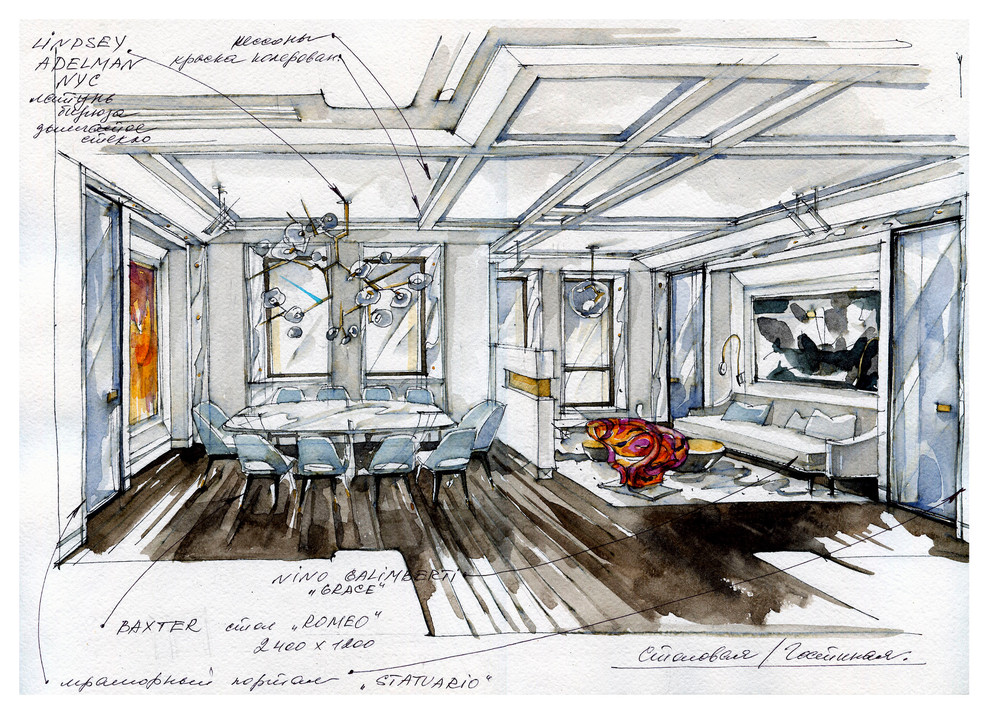 LINDSEY
ADELMAN
NYC
латунь
бирюза
дымчатое
стекло
кессоны
краска колерован.
NINO GALIMBERTI
„GRACE"
BAXTER стол „ROMEO"
2400 x 1200
мраморный портал „STATUARIO"
Столовая / Гостиная.